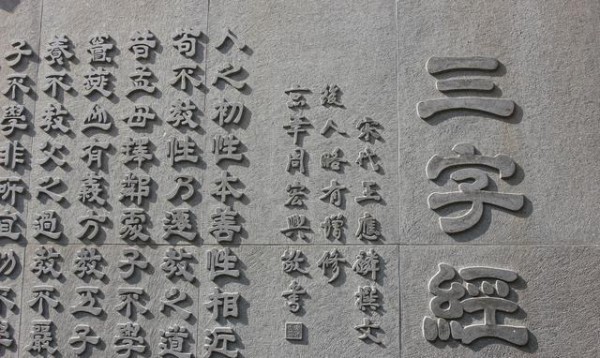 三字經
宋代王應麟撰文
後人略有增修
周宏興敬書
人之初性本善性相近
苟不教性乃遷教之道
昔孟母擇鄰處子不學
竇燕山有義方教五子
養不教父之過教不嚴
子不學非所宜幼不學